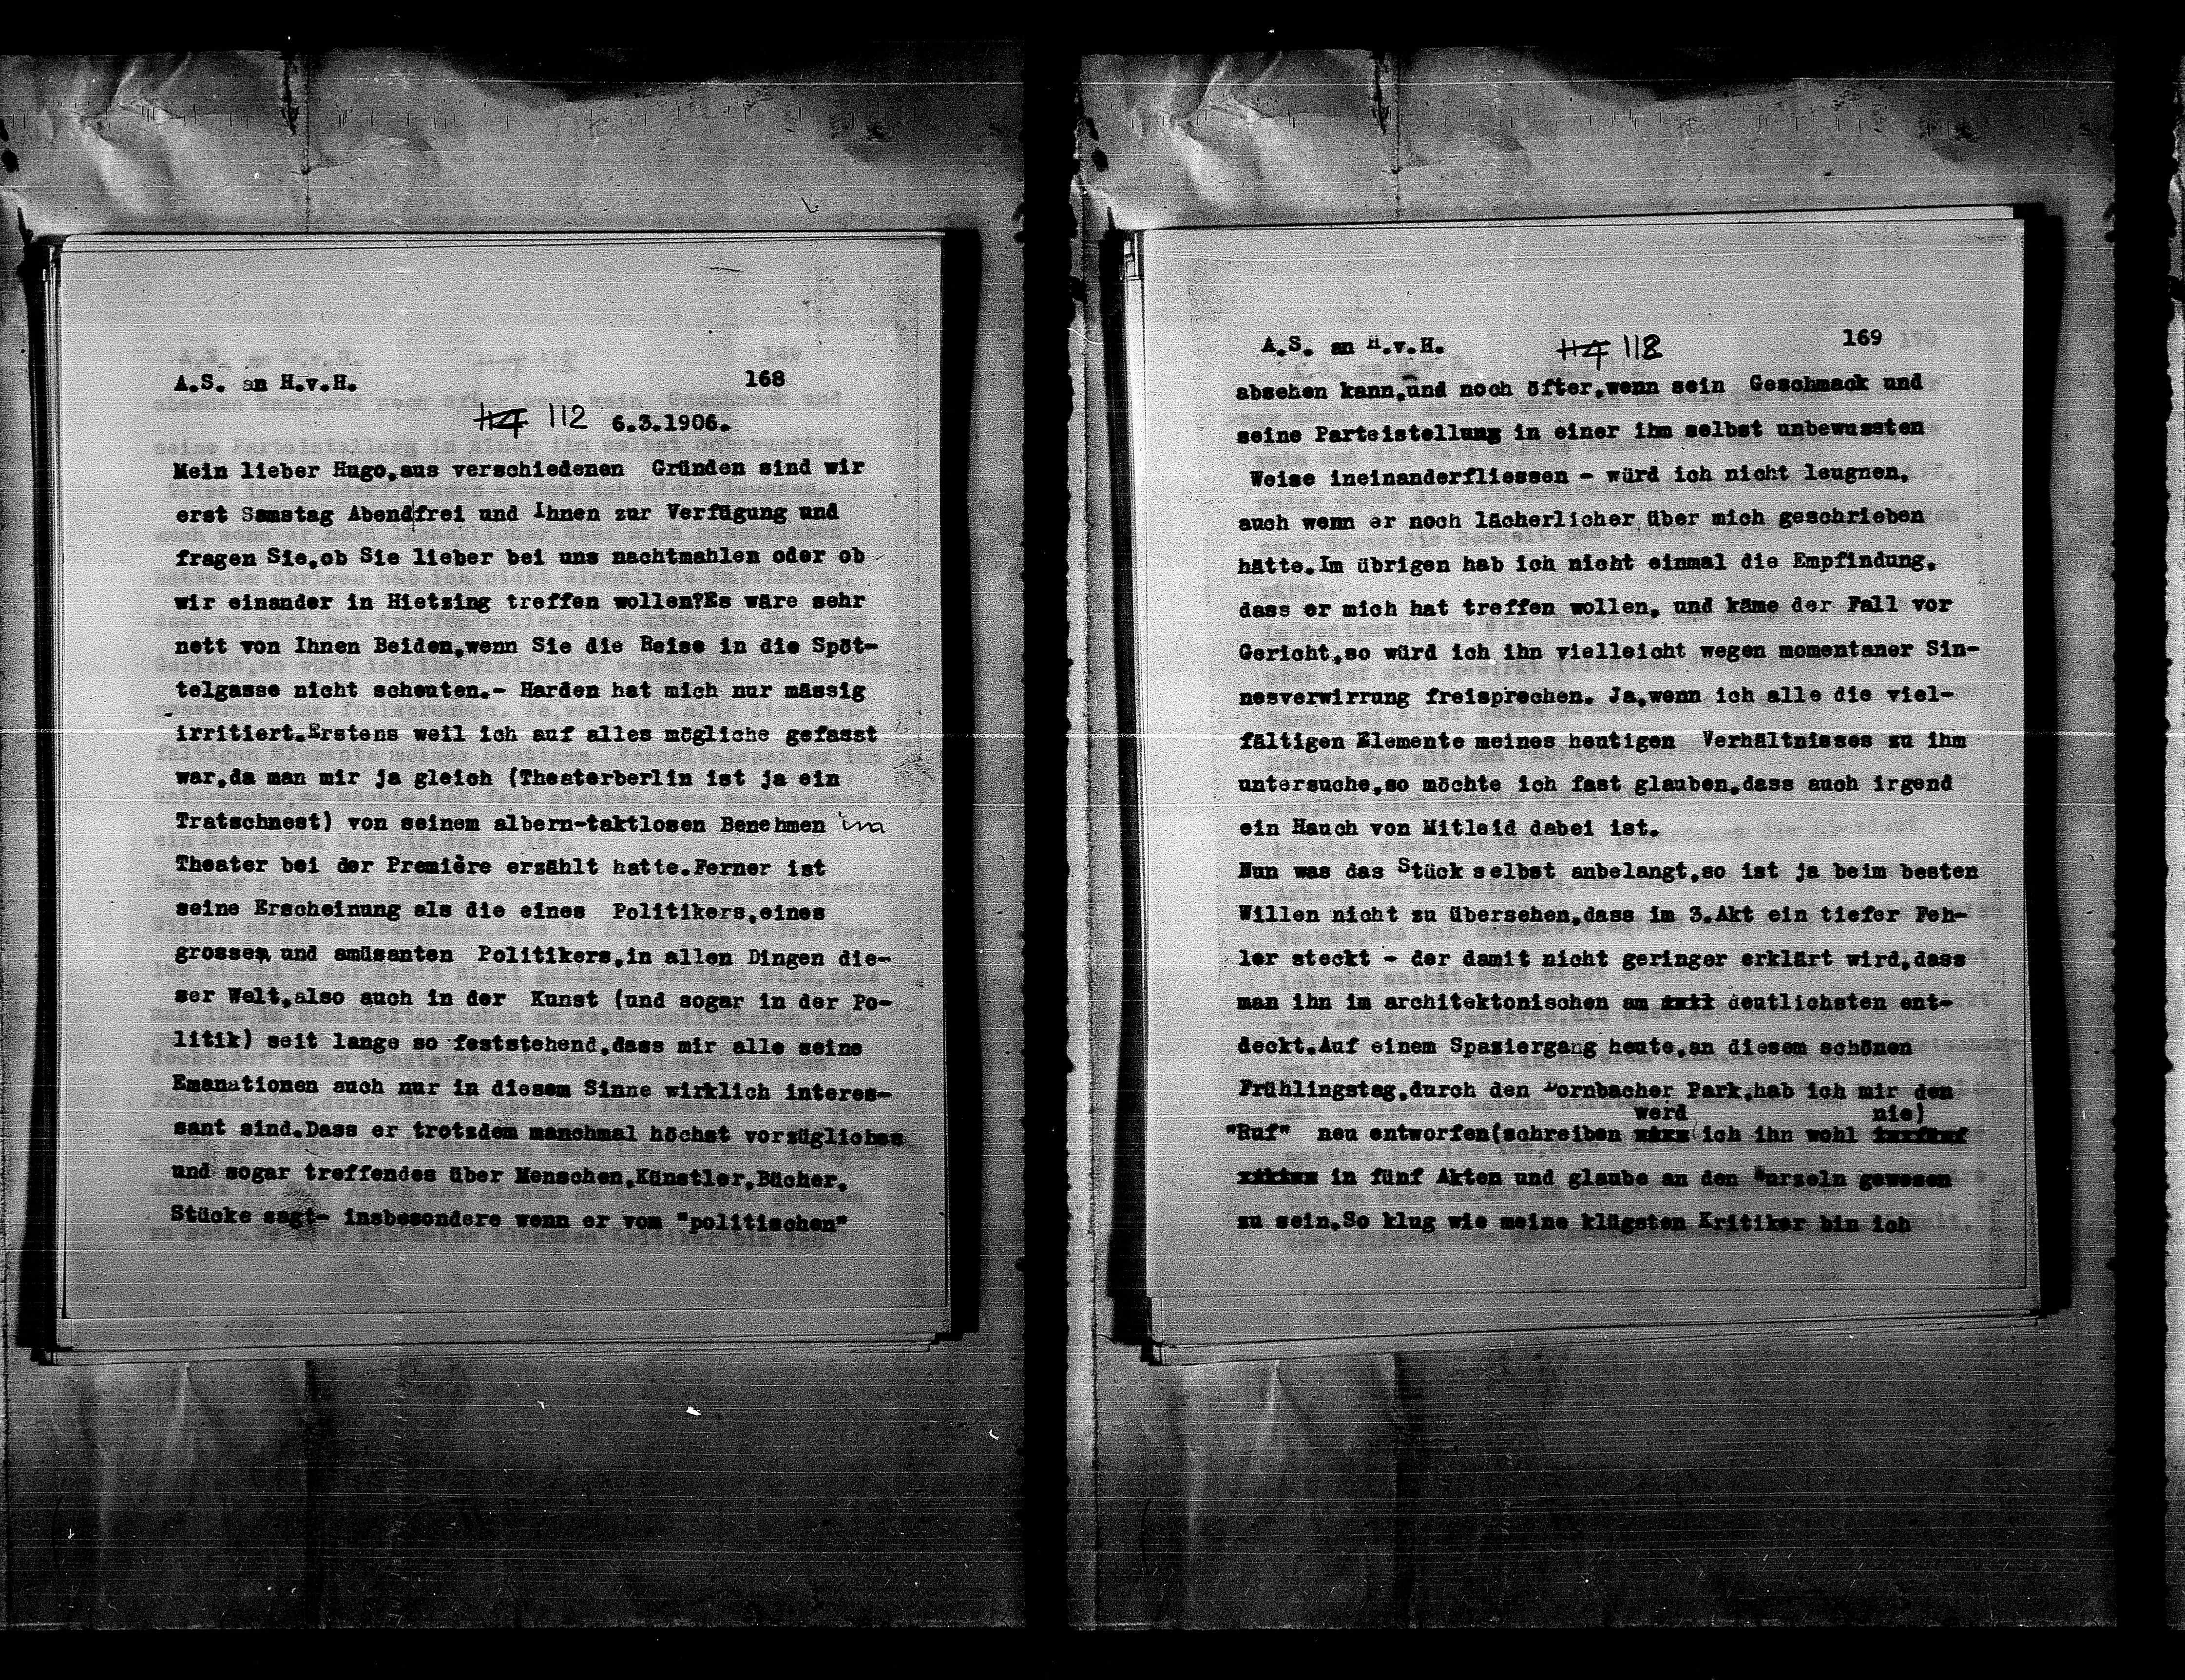 A.S. an H.v.H. 168
114 112 6.3.1906.
Mein lieber Hugo,aus verschiedenen Gründen sind wir
erst Samstag Abend frei und Ihnen zur Verfügung und
fragen Sie,ob Sie lieber bei uns nachtmahlen oder ob
wir einander in Hietzing treffen wollen?Es wäre sehr
nett von Ihnen Beiden,wenn Sie die Reise in die Spöt-
telgasse nicht scheuten.- Harden hat mich nur mässig
irritiert.Erstens weil ich auf alles mögliche gefasst
war,da man mir ja gleich (Theaterberlin ist ja ein
Tratschnest) von seinem albern-taktlosen Benehmen im
Theater bei der Première erzählt hatte.Ferner ist
seine Erscheinung als die eines Politikers,eines
grossen und amüsanten Politikers,in allen Dingen die-
ser Welt,also auch in der Kunst (und sogar in der Po-
litik) seit lange so feststehend,dass mir alle seine
Emanationen auch nur in diesem Sinne wirklich interes-
sant sind.Dass er trotzdem manchmal höchst vorzügliches
und sogar treffendes über Menschen,Künstler,Bücher,
Stücke sagt- insbesondere wenn er vom "politischen"
A.S. an H.v.H. 114 118 169
absehen kann,und noch öfter,wenn sein Geschmack und
seine Parteistellung in einer ihm selbst unbewussten
Weise ineinanderfliessen - würd ich nicht leugnen,
auch wenn er noch lächerlicher über mich geschrieben
hätte.Im übrigen hab ich nicht einmal die Empfindung,
dass er mich hat treffen wollen, und käme der Fall vor
Gericht,so würd ich ihn vielleicht wegen momentaner Sin-
nesverwirrung freisprechen. Ja,wenn ich alle die viel-
fältigen Elemente meines heutigen Verhältnisses zu ihm
untersuche,so möchte ich fast glauben,dass auch irgend
ein Hauch von Mitleid dabei ist.
Nun was das Stück selbst anbelangt,so ist ja beim besten
Willen nicht zu übersehen,dass im 3.Akt ein tiefer Feh-
ler steckt - der damit nicht geringer erklärt wird,dass
man ihn im architektonischen am deutlichsten ent-
deckt.Auf einem Spaziergang heute,an diesem schönen
Frühlingstag,durch den Dornbacher Park,hab ich mir den
werd nie)
"Ruf" neu entworfen(schreiben ich ihn wohl
in fünf Akten und glaube an den Wurzeln gewesen
zu sein.So klug wie meine klügsten Kritiker bin ich